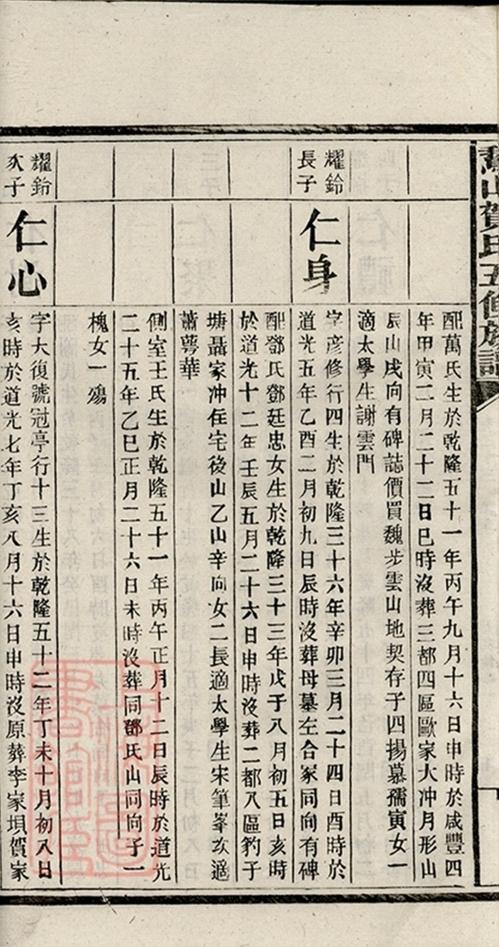 賀氏五修族譜
配萬氏生於乾隆五十一年丙午九月十六日申時於咸豐四
年甲寅二月二十二日巳時沒葬三都四區歐家大沖月形山
辰山戌向有碑誌價買魏步雲山地契存子四揚慕孺寅女一
適太學生謝雲門
耀鈴
長子
仁身
字彥修行四生於乾隆三十六年辛卯三月二十四日酉時於
道光五年乙酉二月初九日辰時沒葬母墓左合冢同向有碑
配鄧氏鄧廷忠女生於乾隆三十三年戊子八月初五日亥時
於道光十二年壬辰五月二十六日申時沒葬二都八區豹子
塘聶家冲住宅後山乙山辛向女二長適太學生宋筆峯次適
蕭萼華
側室王氏生於乾隆五十一年丙午正月十二日辰時於道光
二十五年乙巳正月二十六日未時沒葬同鄧氏山同向子一
槐女一殤
耀鈴
次子
仁心
字大復號冠亭行十三生於乾隆五十二年丁未十月初八日
亥時於道光七年丁亥八月十六日申時沒原葬李家垻賀家